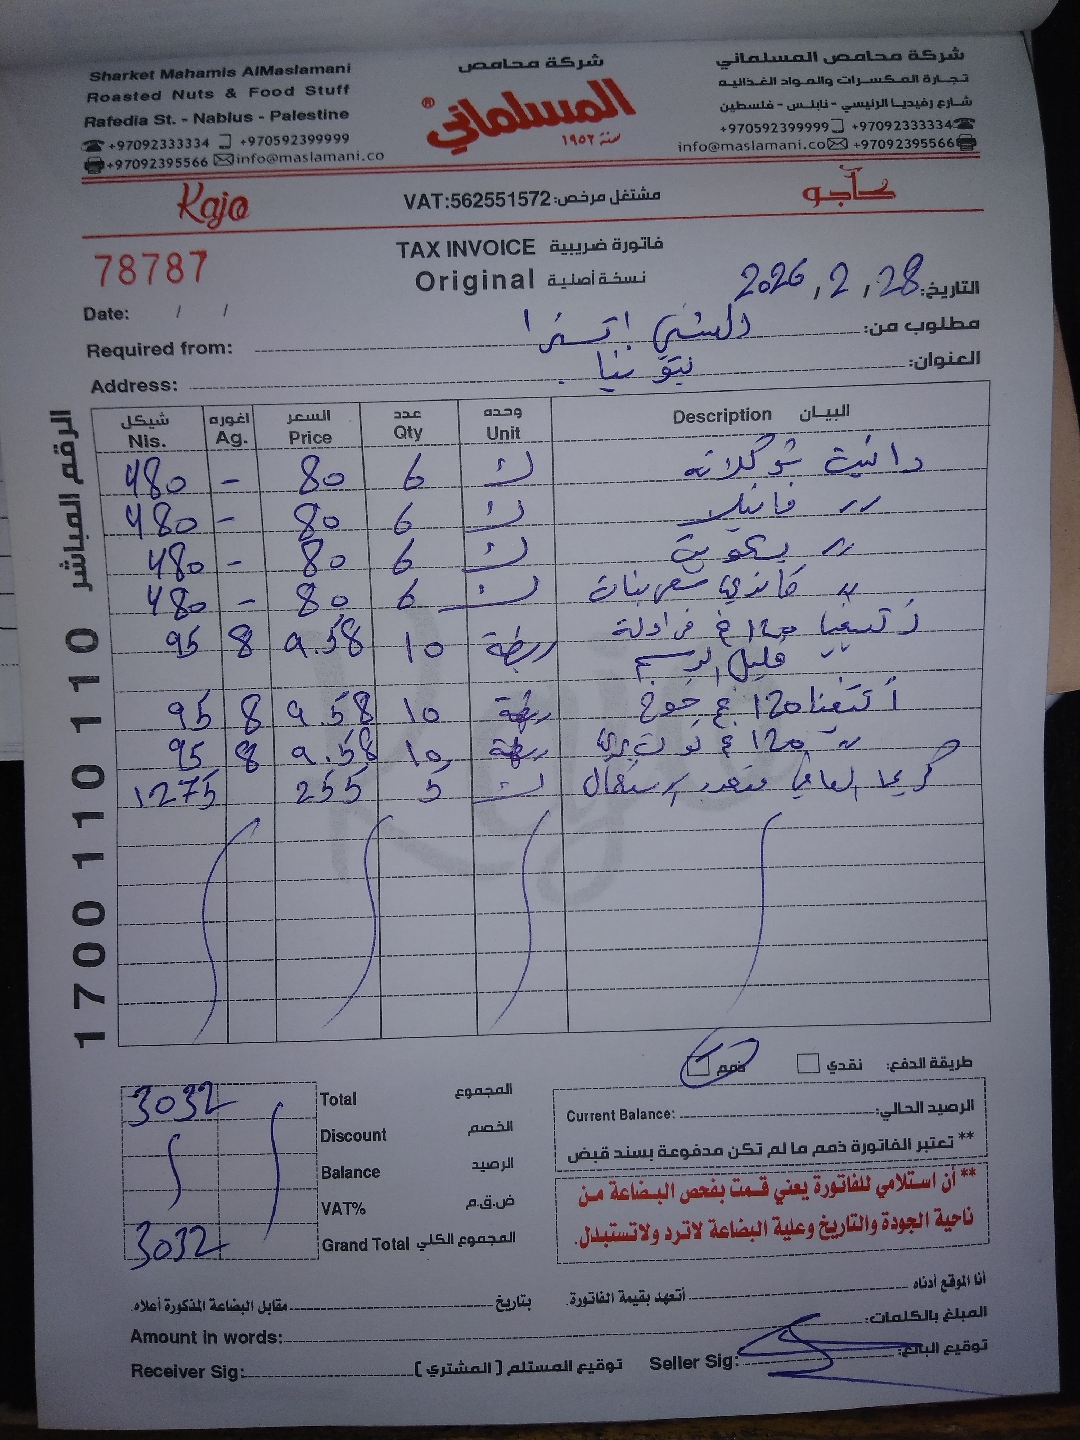 Sharket Mahamis AlMaslamani
Roasted Nuts & Food Stuff
Rafedia St. - Nablus - Palestine
+97092333334 +970592399999
+97092395566 info@maslamani.co
شركة محامص
المسلماني®
سنة ١٩٥٢
شركة محامص المسلماني
تجارة المكسرات والمواد الغذائية
شارع رفيديا الرئيسي - نابلس - فلسطين
+970592399999 +97092333334
info@maslamani.co +97092395566
Kaja
VAT:562551572 مشتغل مرخص:
كاجو
78787
TAX INVOICE فاتورة ضريبية
Original نسخة أصلية
التاريخ: 2026 , 2 , 28
Date: / /
Required from: مطلوب من:
Address: العنوان:
الرقم المباشر 1700 110 110
شيكل اغوره السعر عدد وحده البيان
Nis. Ag. Price Qty Unit Description
480 - 80 6 ك دانيت شوكلاته
480 - 80 6 ك 〃 فانيلا
480 - 80 6 ك 〃 بسكويت
480 - 80 6 ك 〃 كاندي شعر بنات
95 8 9.58 10 ربطة 120 غ فراولة
قليل الدسم
95 8 9.58 10 ربطة 120 غ خوخ
95 8 9.58 10 ربطة 〃 120 غ توت بري
1275 255 5 ك كريما متعدد استعمال
طريقة الدفع: نقدي ذمم
3032 Total المجموع
Discount الخصم
Balance الرصيد
VAT% ض.ق.م
3032 Grand Total المجموع الكلي
Current Balance: الرصيد الحالي:
** تعتبر الفاتورة ذمم ما لم تكن مدفوعة بسند قبض
** أن استلامي للفاتورة يعني قمت بفحص البضاعة من
ناحية الجودة والتاريخ وعلية البضاعة لاترد ولاتستبدل.
أنا الموقع أدناه أتعهد بقيمة الفاتورة. بتاريخ مقابل البضاعة المذكورة أعلاه.
Amount in words: المبلغ بالكلمات:
Receiver Sig: توقيع المستلم (المشتري) Seller Sig: توقيع البائع: